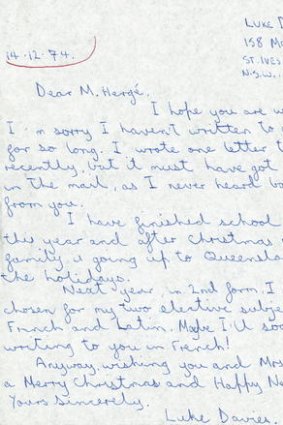 LUKE
158
14.12.74.
ST. IVES
N.S.W.
Dear M. Hergé.
I hope you are
I'm sorry I haven't written to
for so long. I wrote one letter
recently, but it must have got
in the mail, as I never heard
from you.
I have finished school
the year and after Christmas
family is going up to
the holidays.
Next year, in 2nd form, I
chosen for my two elective
French and Latin. Maybe I'll
writing to you in French!
Anyway, wishing you and Mrs
a Merry Christmas and Happy
Yours Sincerely,
Luke Davies.